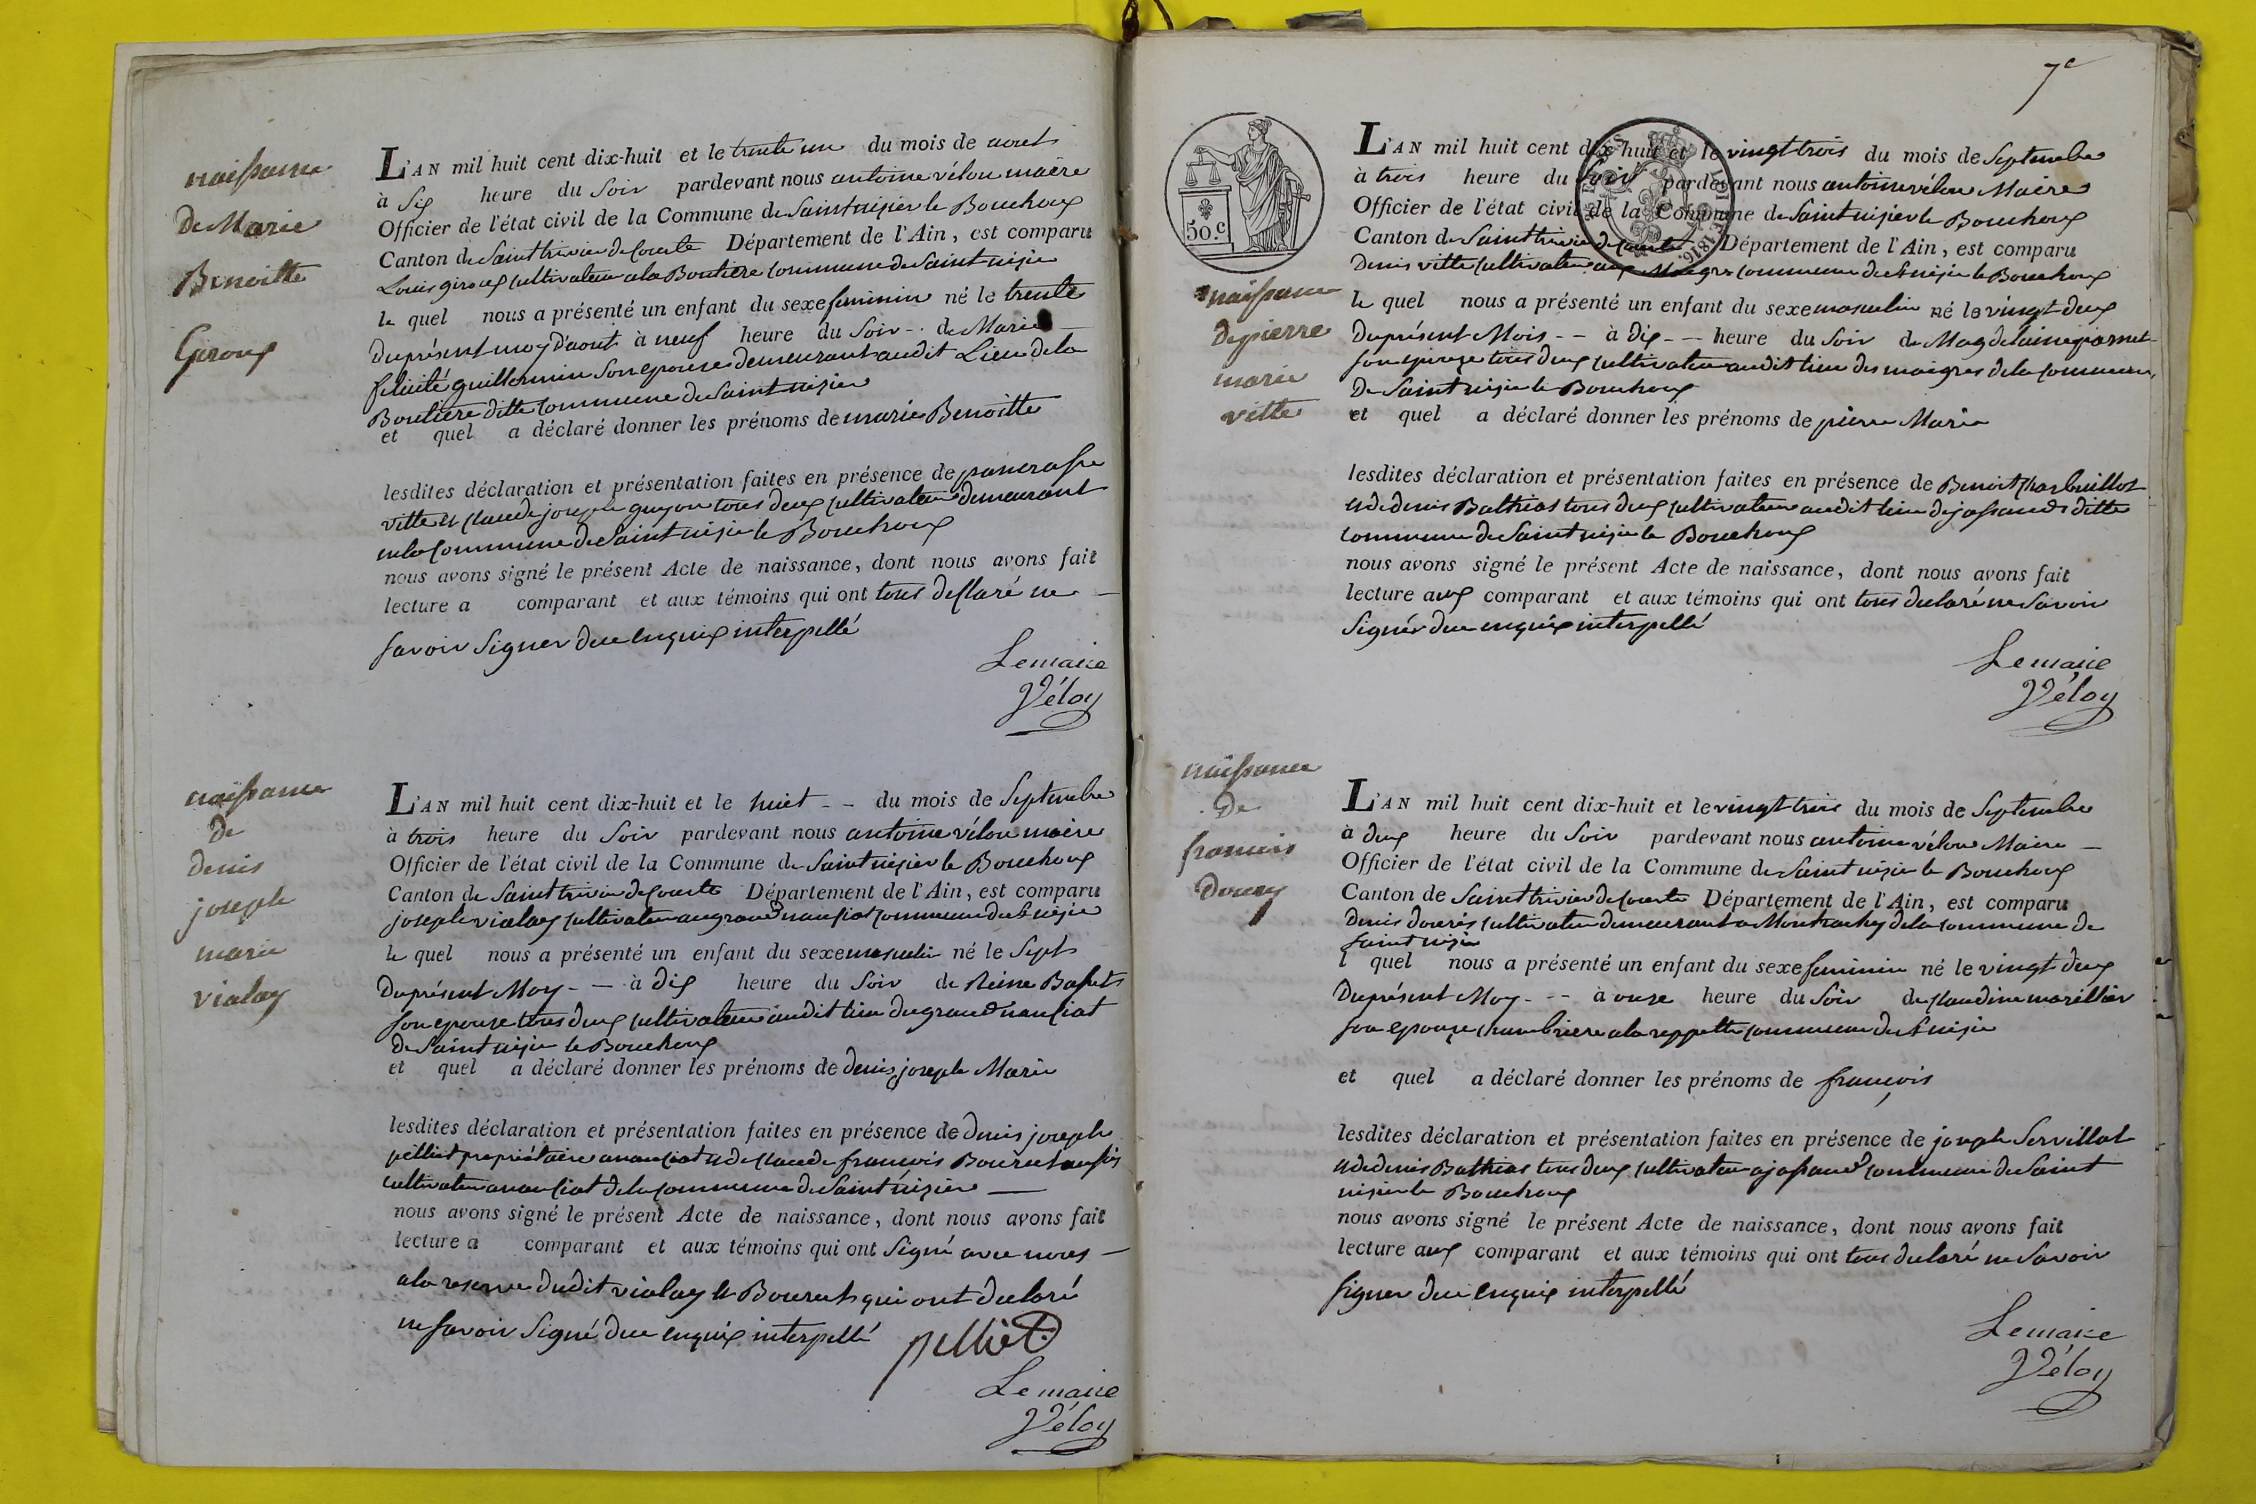 naissance
De Marie
Benoitte
Giroux
L'AN mil huit cent dix-huit et le trente un du mois de aout
à six heure du Soir pardevant nous antoine vélon maire
Officier de l'état civil de la Commune de Saint nizier le Bouchoux
Canton de Saint trivier de Courte Département de l'Ain, est comparu
Louis giroux cultivateur a la Boutiere commune de Saint nizier
le quel nous a présenté un enfant du sexe feminin né le trente
Du présent moy d'aout à neuf heure du Soir - de Marie
felicité guillermin Son epouse demeurant audit Lieu de la
Boutiere ditte commune de Saint nizier
et quel a déclaré donner les prénoms de marie Benoitte
lesdites déclaration et présentation faites en présence de pancrasse
vitte et Claude joseph guyon tous deux cultivateur demeurant
en la commune de Saint nizier le Bouchoux
nous avons signé le présent Acte de naissance, dont nous avons fait
lecture a comparant et aux témoins qui ont tous desclaré ne
savoir Signer due enquix interpellé
Lemaire
Véloy
naissance
De
denis
joseph
marie
vialay
L'AN mil huit cent dix-huit et le huit -- du mois de Septembre
à trois heure du Soir pardevant nous antoine vélon maire
Officier de l'état civil de la Commune de Saint nizier le Bouchoux
Canton de Saint trivier de Courte Département de l'Ain, est comparu
joseph vialay cultivateur au grand nanciat commune de St nizier
le quel nous a présenté un enfant du sexe masculin né le Sept
Du présent Moy -- à dix heure du Soir de Reine Bassets
Son epouse tous deux cultivateur audit lieu du grand nanciat
De Saint nizier le Bouchoux
et quel a déclaré donner les prénoms de denis joseph Marie
lesdites déclaration et présentation faites en présence de denis joseph
pelliet propriétaire a nanciat et de Claude francois Bouret
cultivateur a nanciat de la commune de Saint nizier
nous avons signé le présent Acte de naissance, dont nous avons fait
lecture a comparant et aux témoins qui ont Signé avec nous
a la reserve dudit vialay et Bouret qui ont declaré
ne savoir Signé due enquix interpellé
pelliet
Lemaire
Véloy
7e
50.c
LOI DE 1816.
naissance
De pierre
marie
vitte
L'AN mil huit cent dix-huit et le vingt trois du mois de Septembre
à trois heure du Soir pardevant nous antoine vélon Maire
Officier de l'état civil de la Commune de Saint nizier le Bouchoux
Canton de Saint trivier de Courte Département de l'Ain, est comparu
Denis vitte cultivateur aux Maigres commune de St nizier le Bouchoux
le quel nous a présenté un enfant du sexe masculin né le vingt deux
Du présent Mois -- à Dix -- heure du Soir de Magdelaine
son epouze tous deux cultivateur audit lieu des maigres de la commune
De Saint nizier le Bouchoux
et quel a déclaré donner les prénoms de pierre Marie
lesdites déclaration et présentation faites en présence de Benoit Charbuillot
et de denis Bathias tous deux cultivateur audit lieu de jassand ditte
commune de Saint nizier le Bouchoux
nous avons signé le présent Acte de naissance, dont nous avons fait
lecture aux comparant et aux témoins qui ont tous declaré ne Savoir
Signér due enquix interpellé
Lemaire
Véloy
naissance
De
francois
Dourez
L'AN mil huit cent dix-huit et le vingt trois du mois de Septembre
à deux heure du Soir pardevant nous antoine vélon Maire
Officier de l'état civil de la Commune de Saint nizier le Bouchoux
Canton de Saint trivier de Courte Département de l'Ain, est comparu
Denis dourés cultivateur demeurant a Montrachy de la commune de
Saint nizier
l quel nous a présenté un enfant du sexe feminin né le vingt deux
Du présent Moy -- à onze heure du Soir de Claudine marillier
son epouze chambriere a la reppette commune de St nizier
et quel a déclaré donner les prénoms de françois
lesdites déclaration et présentation faites en présence de joseph Servillat
et de denis Bathias tous deux cultivateur a jassand commune de Saint
nizier le Bouchoux
nous avons signé le présent Acte de naissance, dont nous avons fait
lecture aux comparant et aux témoins qui ont tous declaré ne Savoir
Signer due enquix interpellé
Lemaire
Véloy